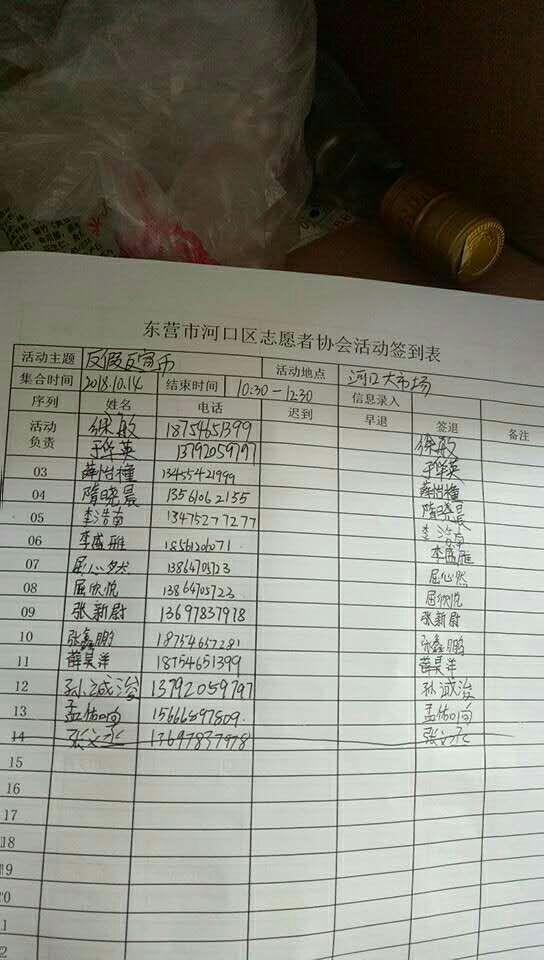 东营市河口区志愿者协会活动签到表
活动主题 反假反宣币 活动地点 河口大市场
集合时间 2018.10.14 结束时间 10:30-12:30 信息录入
序列 姓名 电话 迟到 早退 签退 备注
活动负责 徐敏 18754651399 徐敏
于华英 13792059797 于华英
03 薛怡橦 13455421999 薛怡橦
04 隋晓晨 13561062155 隋晓晨
05 李浩南 13475277277 李浩南
06 李盛雁 李盛雁
07 屈心然 13864705723 屈心然
08 屈欣悦 13864705723 屈欣悦
09 张新尉 13697837978 张新尉
10 张鑫鹏 18754657281 张鑫鹏
11 薛昊洋 18754651399 薛昊洋
12 孙诚浚 13792059797 孙诚浚
13 孟佑向 15666897809 孟佑向
14 13697837978
15
16
17
18
19